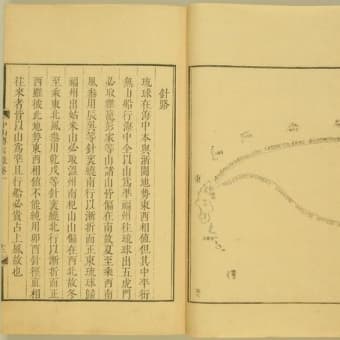 針路
琉球在海中本與浙閩地勢東西相值但其中平衍
無山船行海中全以山為準福州往琉球出五虎門
必取雞籠彭家等山諸山皆偏在南故夏至乘西南
風叅用辰巽等針袤繞南行以漸折而正東琉球歸
福州出姑米山必取溫州南杞山山偏在西北故冬
至乘東北風叅用乾戌等針袤繞北行以漸折而正
西雖彼此地勢東西相值不能純用卯酉針徑直相
往來者皆以山為準且行船必貴占上風故也